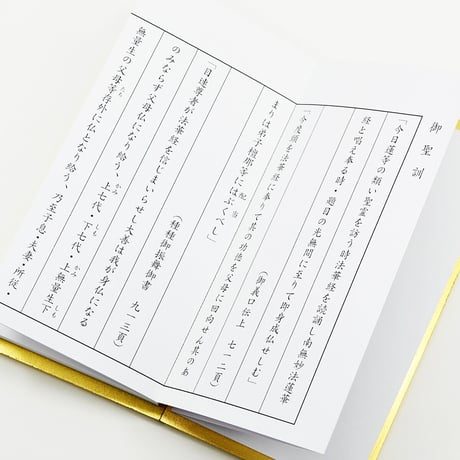 御聖訓
「今日蓮等の類い聖霊を訪う時法華経を読誦し南無妙法蓮華
経と唱え奉る時・題目の光無間に至りて即身成仏せしむ」
(御義口伝上 七一二頁)
「今度頸を法華経に奉りて其の功徳を父母に回向せん其のあ
まりは弟子檀那等にはぶくべし」
配当
(種種御振舞御書 九一三頁)
「目連尊者が法華経を信じまいらせし大善は我が身仏になる
のみならず父母仏になり給う、上七代・下七代・上無量生下
かみ しも かみ しも
無量生の父母等存外に仏となり給う、乃至子息・夫妻・所従・
たち